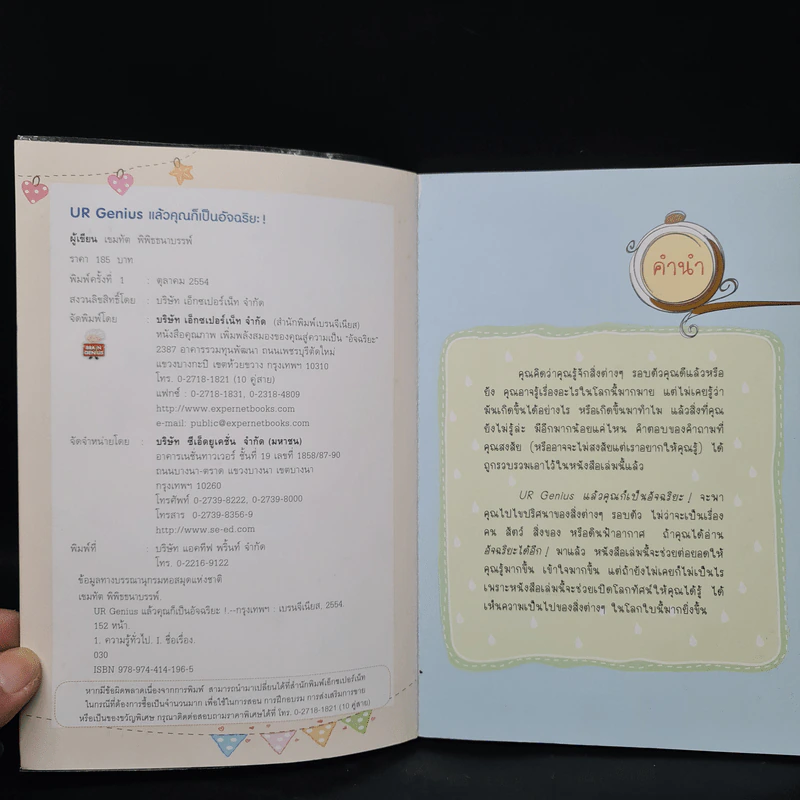 UR Genius แล้วคุณก็เป็นอัจฉริยะ!
ผู้เขียน เขมทัต พิพิธธนาบรรพ์
ราคา 185 บาท
พิมพ์ครั้งที่ 1 : ตุลาคม 2554
สงวนลิขสิทธิ์โดย : บริษัท เอ็กซเปอร์เน็ท จำกัด
จัดพิมพ์โดย : บริษัท เอ็กซเปอร์เน็ท จำกัด (สำนักพิมพ์เบรนจีเนียส)
หนังสือคุณภาพ เพิ่มพลังสมองของคุณสู่ความเป็น "อัจฉริยะ"
BRAIN GENIUS
2387 อาคารรวมทุนพัฒนา ถนนเพชรบุรีตัดใหม่
แขวงบางกะปิ เขตห้วยขวาง กรุงเทพฯ 10310
โทร. 0-2718-1821 (10 คู่สาย)
แฟกซ์ : 0-2718-1831, 0-2318-4809
http://www.expernetbooks.com
e-mail: public@expernetbooks.com
จัดจำหน่ายโดย : บริษัท ซีเอ็ดยูเคชั่น จำกัด (มหาชน)
อาคารเนชั่นทาวเวอร์ ชั้นที่ 19 เลขที่ 1858/87-90
ถนนบางนา-ตราด แขวงบางนา เขตบางนา
กรุงเทพฯ 10260
โทรศัพท์ 0-2739-8222, 0-2739-8000
โทรสาร 0-2739-8356-9
http://www.se-ed.com
พิมพ์ที่ : บริษัท แอคทีฟ พริ้นท์ จำกัด
โทร. 0-2216-9122
ข้อมูลทางบรรณานุกรมหอสมุดแห่งชาติ
เขมทัต พิพิธธนาบรรพ์.
UR Genius แล้วคุณก็เป็นอัจฉริยะ !.--กรุงเทพฯ : เบรนจีเนียส, 2554.
152 หน้า.
1. ความรู้ทั่วไป. I. ชื่อเรื่อง.
030
ISBN 978-974-414-196-5
หากมีข้อผิดพลาดเนื่องจากการพิมพ์ สามารถนำมาเปลี่ยนได้ที่สำนักพิมพ์เอ็กซเปอร์เน็ท
ในกรณีที่ต้องการซื้อเป็นจำนวนมาก เพื่อใช้ในการสอน การฝึกอบรม การส่งเสริมการขาย
หรือเป็นของขวัญพิเศษ กรุณาติดต่อสอบถามราคาพิเศษได้ที่ โทร. 0-2718-1821 (10 คู่สาย)
คำนำ
คุณคิดว่าคุณรู้จักสิ่งต่างๆ รอบตัวคุณดีแล้วหรือ
ยัง คุณอาจรู้เรื่องอะไรในโลกนี้มากมาย แต่ไม่เคยรู้ว่า
มันเกิดขึ้นได้อย่างไร หรือเกิดขึ้นมาทำไม แล้วสิ่งที่คุณ
ยังไม่รู้ล่ะ มีอีกมากน้อยแค่ไหน คำตอบของคำถามที่
คุณสงสัย (หรืออาจจะไม่สงสัยแต่เราอยากให้คุณรู้) ได้
ถูกรวบรวมเอาไว้ในหนังสือเล่มนี้แล้ว
UR Genius แล้วคุณก็เป็นอัจฉริยะ! จะพา
คุณไปไขปริศนาของสิ่งต่างๆ รอบตัว ไม่ว่าจะเป็นเรื่อง
คน สัตว์ สิ่งของ หรือดินฟ้าอากาศ ถ้าคุณได้อ่าน
อัจฉริยะได้อีก! มาแล้ว หนังสือเล่มนี้จะช่วยต่อยอดให้
คุณรู้มากขึ้น เข้าใจมากขึ้น แต่ถ้ายังไม่เคยก็ไม่เป็นไร
เพราะหนังสือเล่มนี้จะช่วยเปิดโลกทัศน์ให้คุณได้รู้ ได้
เห็นความเป็นไปของสิ่งต่างๆ ในโลกใบนี้มากยิ่งขึ้น